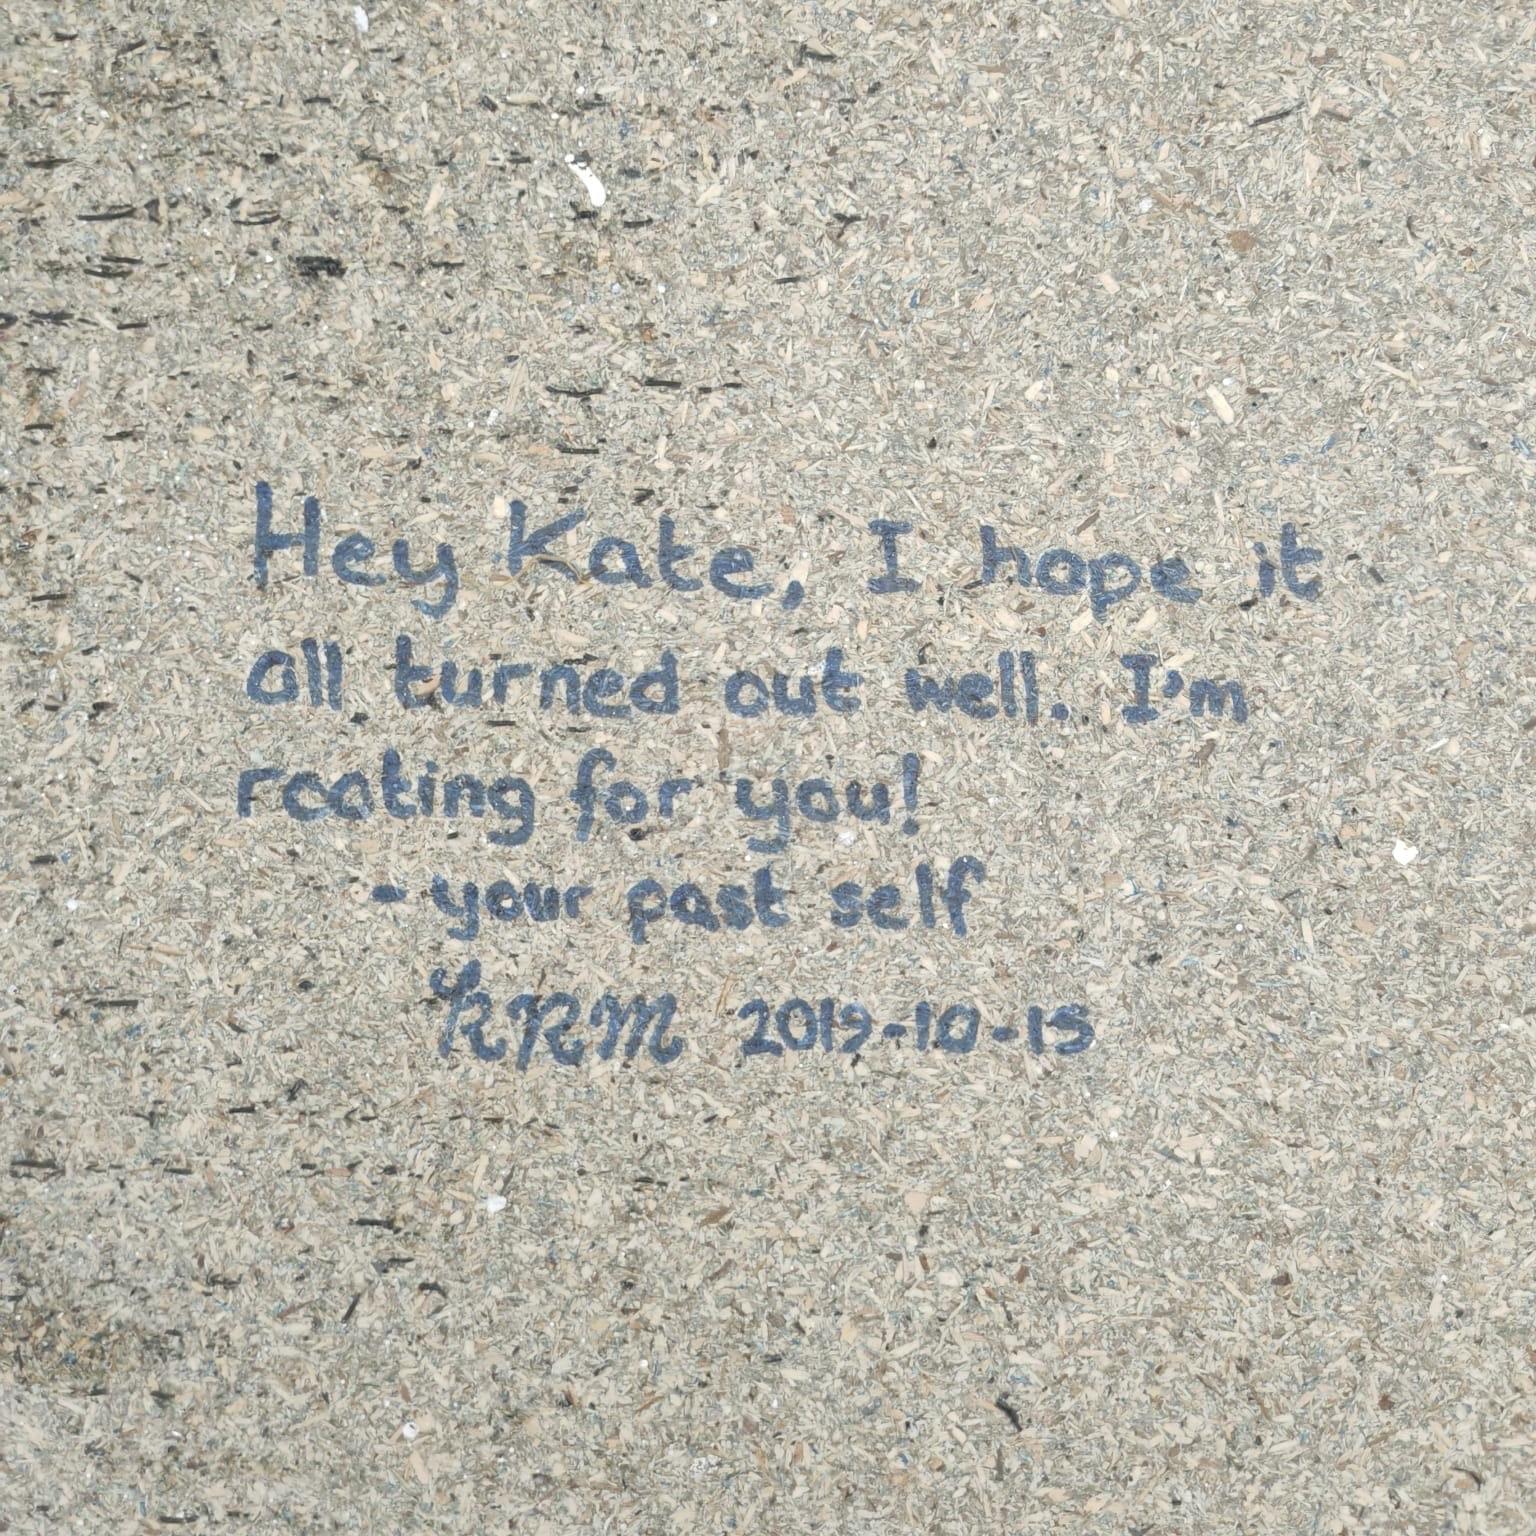 Hey Kate, I hope it
all turned out well. I'm
rooting for you!
- your past self
KRM 2019-10-15